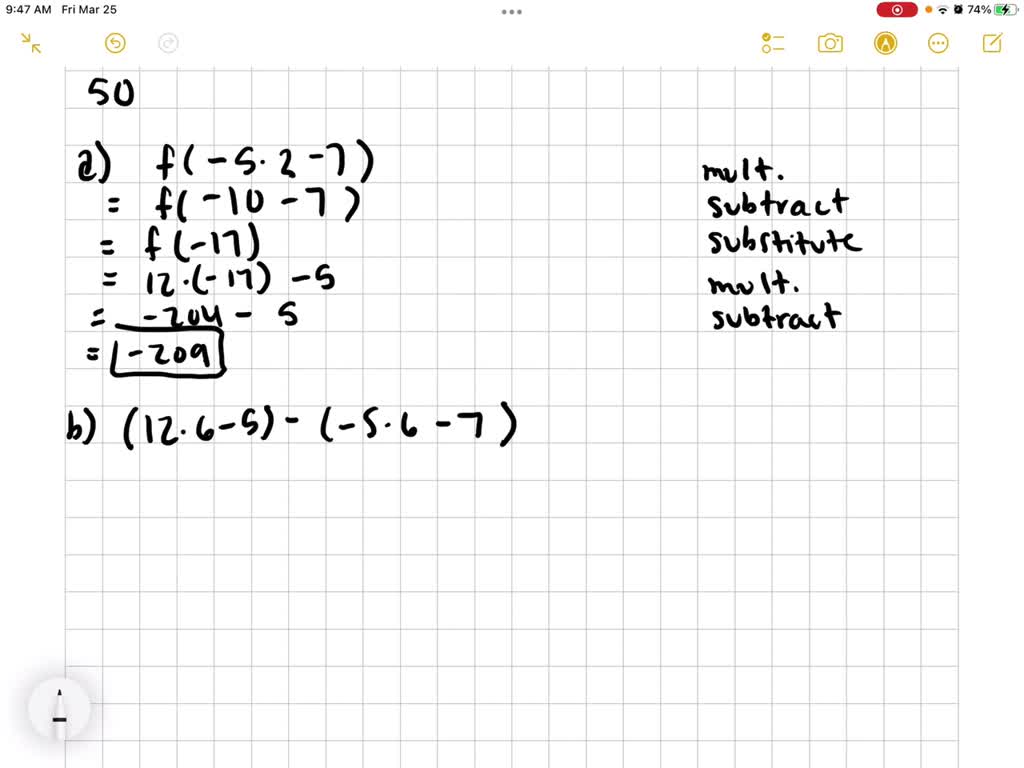 9:47 AM Fri Mar 25 74%
50
a) f(-5·2-7) mult.
= f(-10-7) subtract
= f(-17) substitute
= 12·(-17)-5 mult.
= -204-5 subtract
= -209
b) (12·6-5)-(-5·6-7)